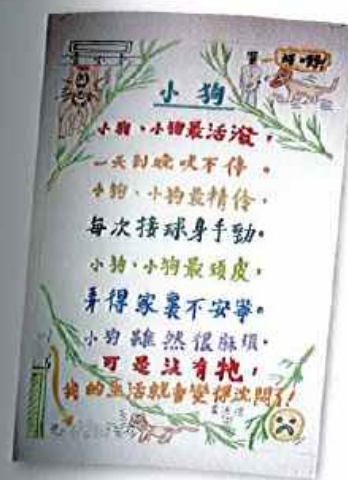 小狗
小狗、小狗最活潑，
一天到晚吠不停。
小狗、小狗最精伶，
每次接球身手勁。
小狗、小狗最頑皮，
弄得家裏不安寧。
小狗雖然很麻煩，
可是沒有牠，
我的生活就會變得沈悶了！